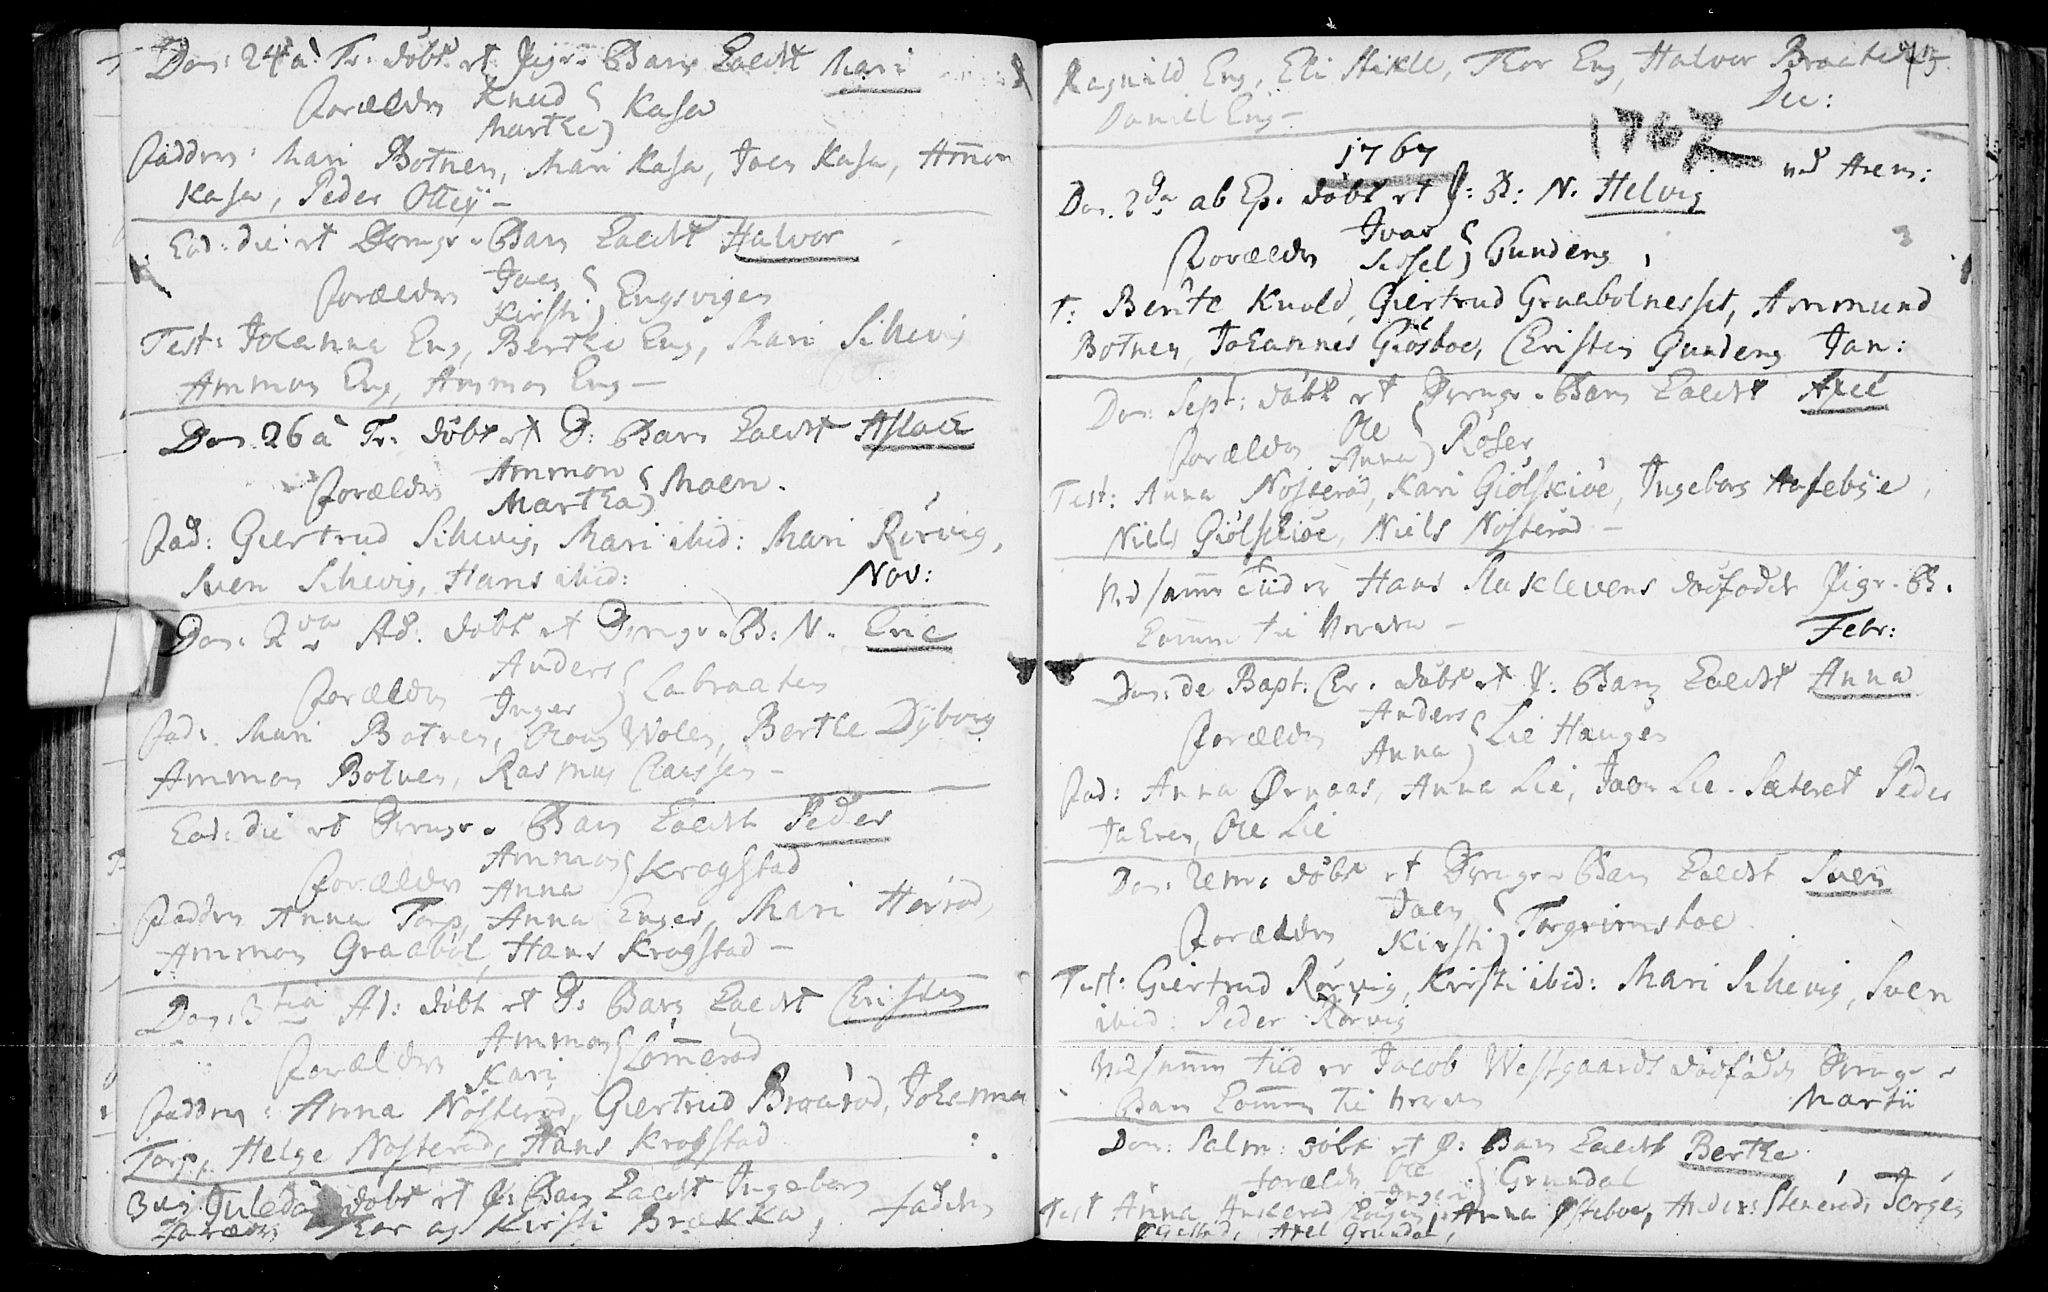 Dom: 24 à Tr. döbt et Pige-Barn kaldt Mari
Forældre Knud Martha } Kasa
Faddere: Mari Botnen, Mari Kasa, Joen Kasa, Ammon
Kasa, Peder Ottey —
Eod: die et Drenge-Barn kaldt Halvor
Forældre Joen Kirsti } Engsvigen
Test: Johanna Eng, Berthe Eng, Mari Schevig
Ammon Eng, Ammon Eng —
Dom. 26 à Tr. döbt et D: Barn kaldt Aslach
Forældre Ammon Martha } Moen.
Fad: Giertrud Schevig, Mari ibid: Mari Rörvig,
Sven Schevig, Hans ibid: Nov:
Dom: 2da Ad: döbt et Drenge-B: N. Eric
Forældre Anders Inger } Labraaten
Fad: Mari Botnen, Wolen, Berthe Dyborg
Ammon Botnen, Rasmus Clausen —
Eod: die et Drenge-Barn kaldt Peder
Forældre Ammon Anna } Krogstad
Faddere Anna Torp, Anna Enger, Mari Haröd,
Ammon Graaböl, Hans Krogstad —
Dom: 3tia Ad: döbt et D: Barn kaldt Christen
Forældre Ammon Kari } Lömmeröd
Faddere: Anna Nösteröd, Giertrud Broeröd, Johanna
Torp, Helge Nösteröd, Hans Krogstad
3die Juledag döbt et P: Barn kaldt Ingeborg
Forældre Thor og Kirsti Brække, Faddere
75.
Ragnild Eng, Eli Stikle, Thor Eng, Halvor Braaten
Daniel Eng — Dec:
1767
1767
Dom. 2da ab Ep. döbt et P: B: N. Helvig
Forældre Ivar Sissel } Gundeng
T: Berite Knold, Giertrud Graabolnesset, Ammund
Botnen, Johannes Giösboe, Christen Gundeng Jan:
Dom: Sept: döbt et Drenge-Barn kaldt Axel
Forældre Ole Anna } Röser
Test: Anna Nösteröd, Kari Giölskiöe, Ingeborg Hafebye
Niels Giölskiöe, Niels Nösteröd —
Ved samme tiid er Hans Slaklevens dödfödde Pige-B.
komme til Verden — Febr:
Dom: de Bapt. Chr. döbt et P: Barn kaldt Anna
Forældre Anders Anna } Lie Haugen
Fad: Anna Ørnaas, Anna Lie, Joen Lie-Sæteret Peder
Ole Lie
Dom: Rem: döbt et Drenge-Barn kaldt Sven
Forældre Joen Kirsti } Torgrimsboe
Test: Giertrud Rörvig, Kirsti ibid: Mari Schevig, Sven
ibid: Peder Rörvig
Ved samme tiid er Jacob Westgaards dödfödde Drenge-
Barn kommen til Verden Martii
Dom: Palm: döbt et P: Barn kaldt Berthe
Forældre Ole Inger } Grundal
Test Anna Anna Østeboe, Anders Steneröd, Jörgen
Axel Grundal,